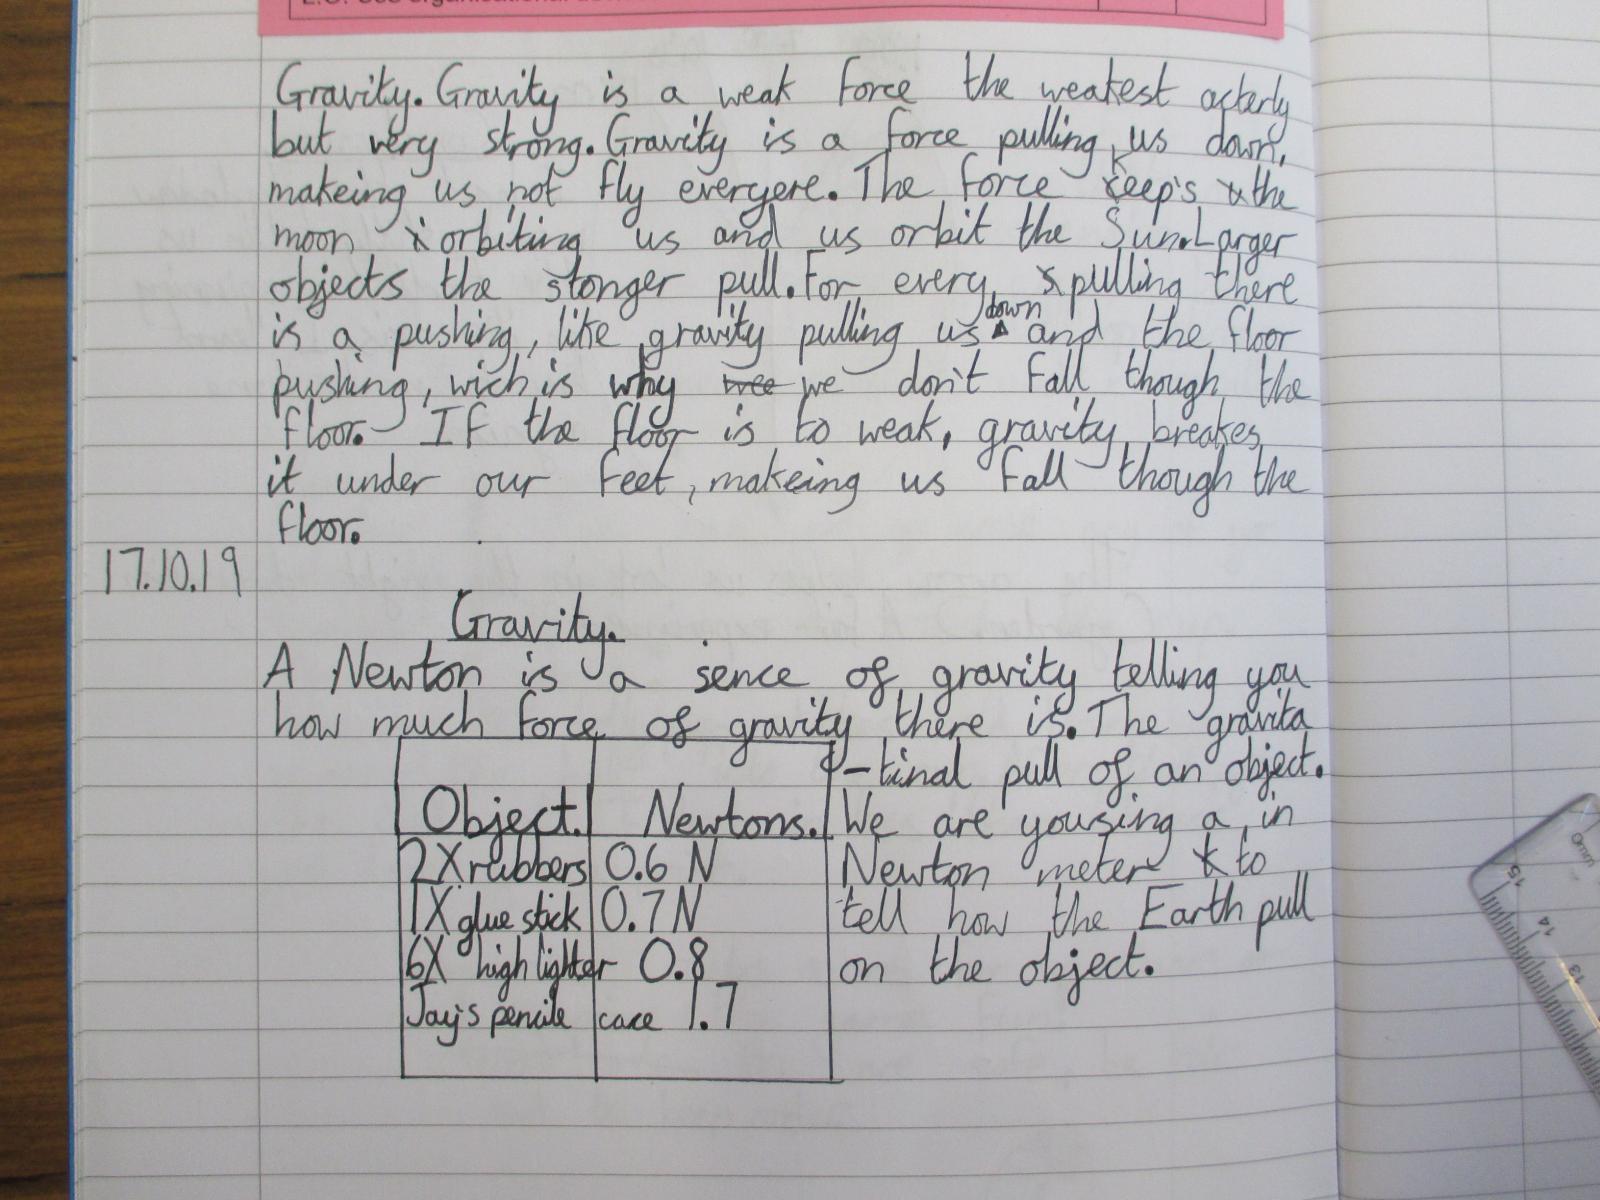 Gravity. Gravity is a weak force the weakest acterly
but very strong. Gravity is a force pulling us down,
makeing us not fly everyere. The force keep's the
moon orbiting us and us orbit the Sun. Larger
objects the stonger pull. For every pulling there
is a pushing, like gravity pulling us down and the floor
pushing, wich is why wee we don't fall though the
floor. If the floor is to weak, gravity breakes
it under our feet, makeing us fall though the
floor.
17.10.19
Gravity.
A Newton is a sence of gravity telling you
how much force of gravity there is. The gravita
-tinal pull of an object.
We are yousing a in
Newton meter to
tell how the Earth pull
on the object.
Object. Newtons.
2X rubbers 0.6 N
1X glue stick 0.7 N
6X highlighter 0.8
Jay's pencile cace 1.7
15
14
13
0mm